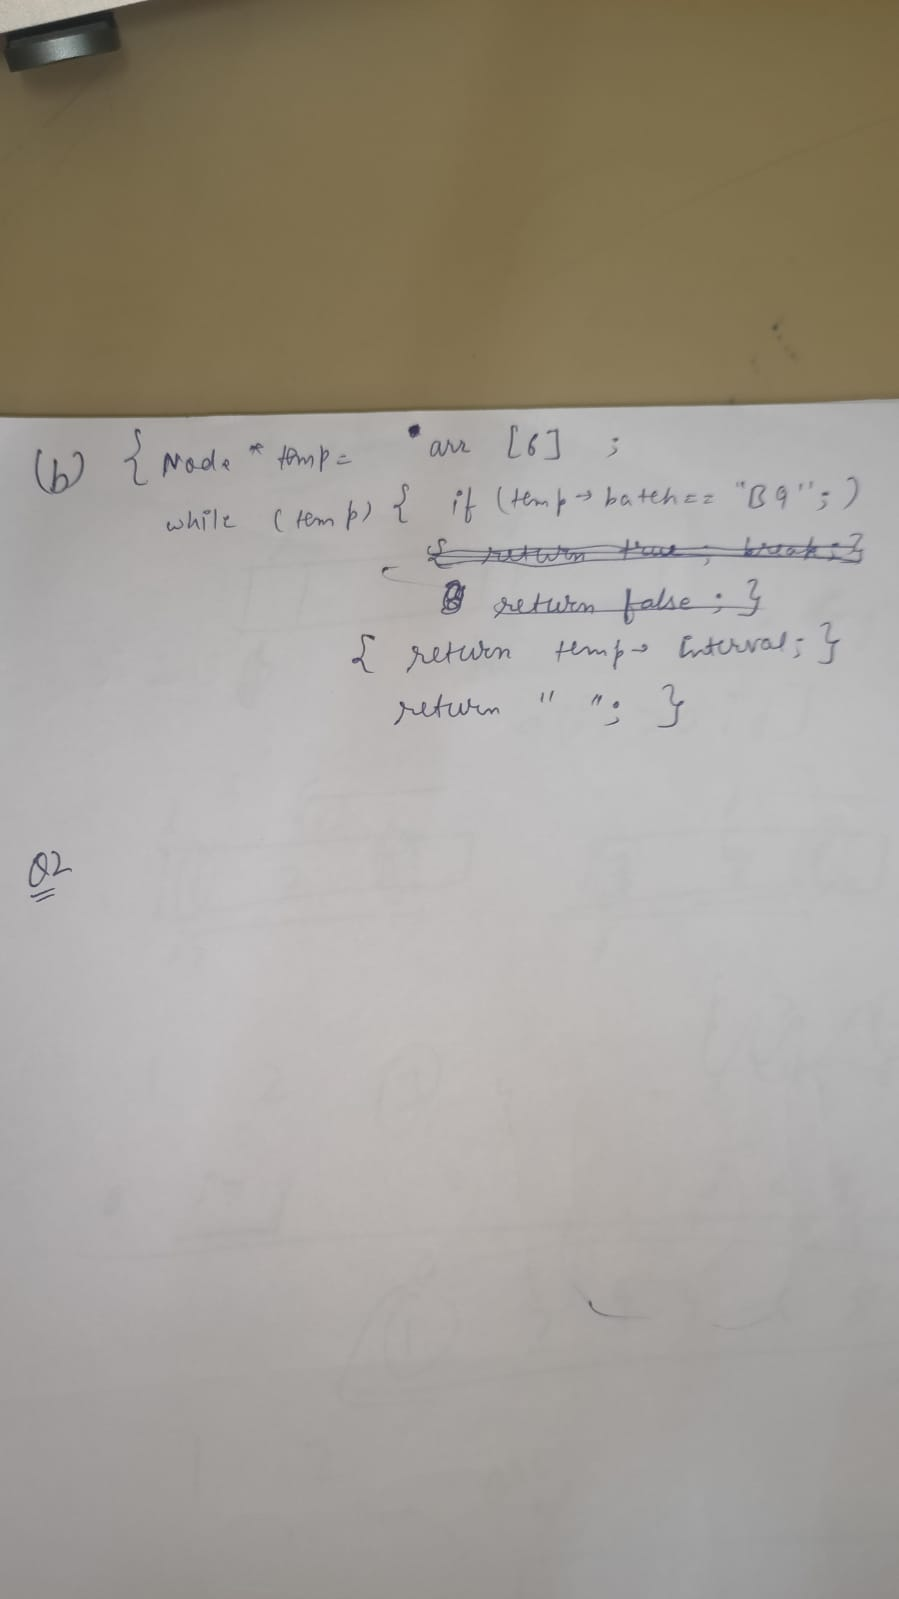 (b) { Node * temp = *arr [6] ;
while (temp) { if (temp→batch== "B9";)
{ return true; break; }
return false; }
{ return temp→ Interval; }
return " "; }
Q2